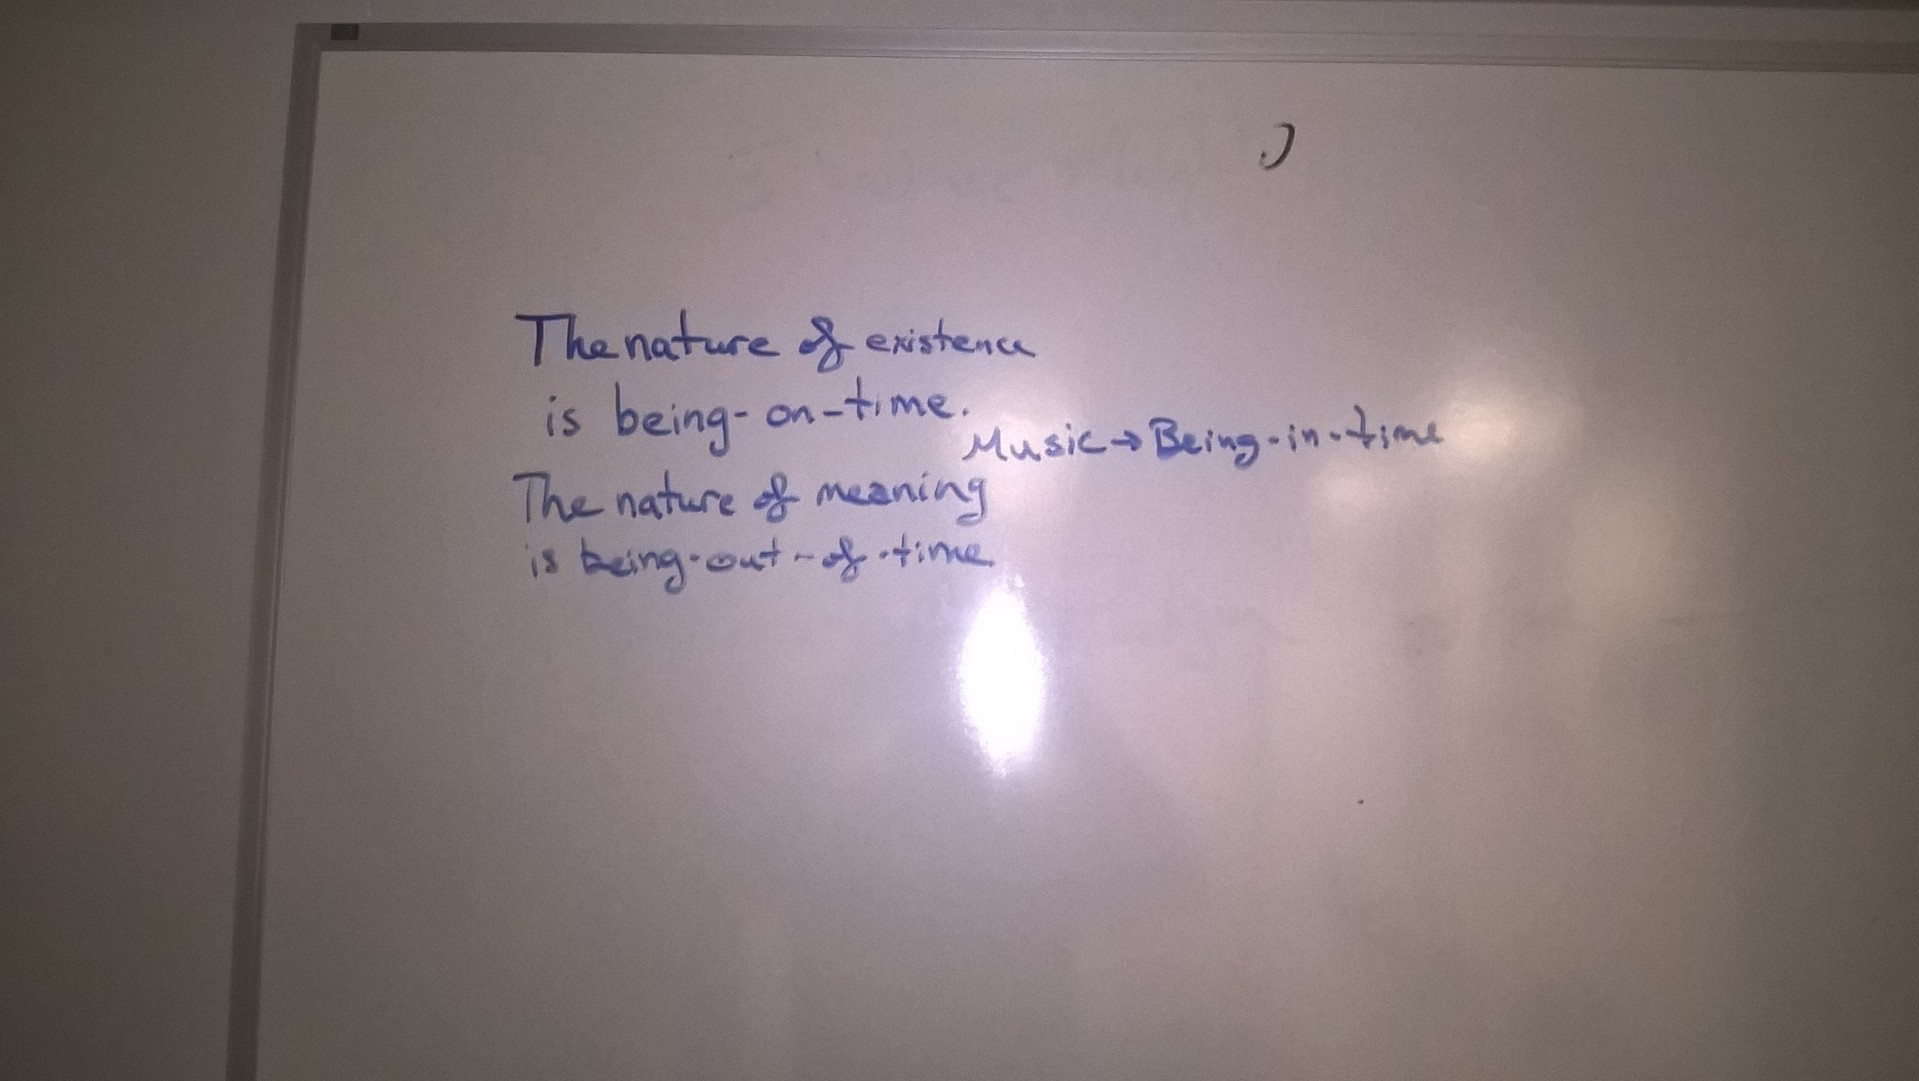 The nature of existence
is being-on-time.
Music → Being-in-time
The nature of meaning
is being-out-of-time